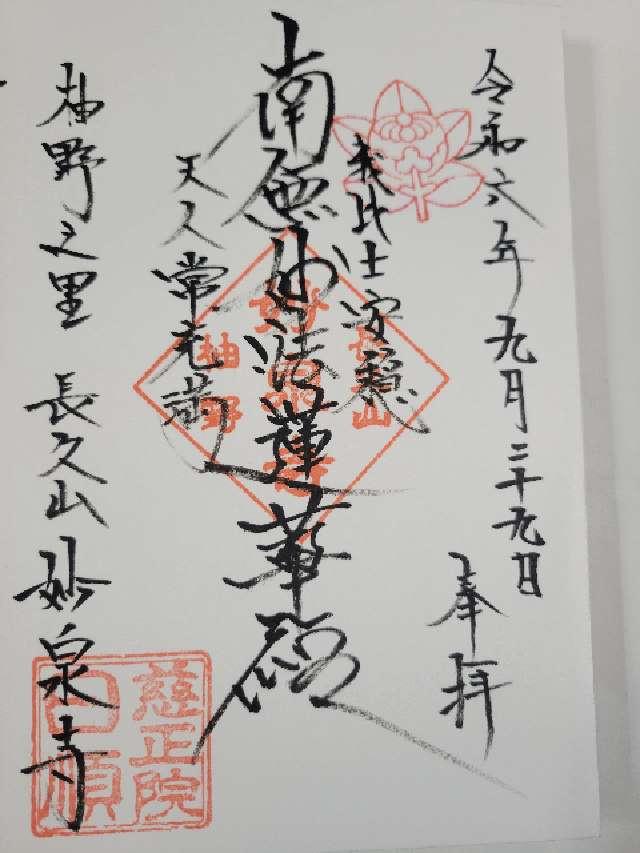 令和六年九月二十九日
奉拝
我此土安穏
南無妙法蓮華経
天人常充満
柚野之里 長久山 妙泉寺
長久山
妙泉寺
柚野
慈正院
日順